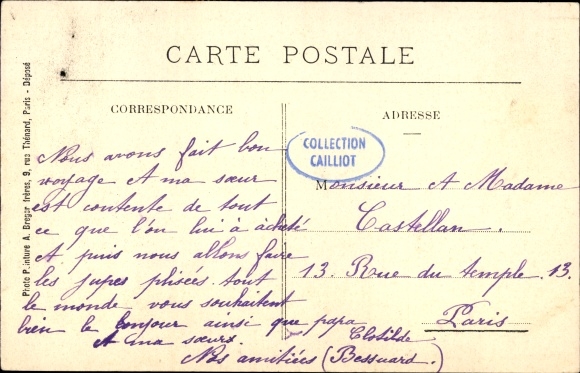 CARTE POSTALE
CORRESPONDANCE
Nous avons fait bon
voyage et ma sœur
est contente de tout
ce que l'on lui à acheté
et puis nous allons faire
les jupes plisées. tout
le monde vous souhaitent
bien le bonjour ainsi que papa
et ma sœurs.
Nos amitiées (Clotilde
Bessuard.)
ADRESSE
COLLECTION
CAILLIOT
Monsieur et Madame
Castellan.
13. Rue du temple. 13.
Paris
Photo Peinture A. Breger frères, 9, rue Thénard, Paris - Déposé